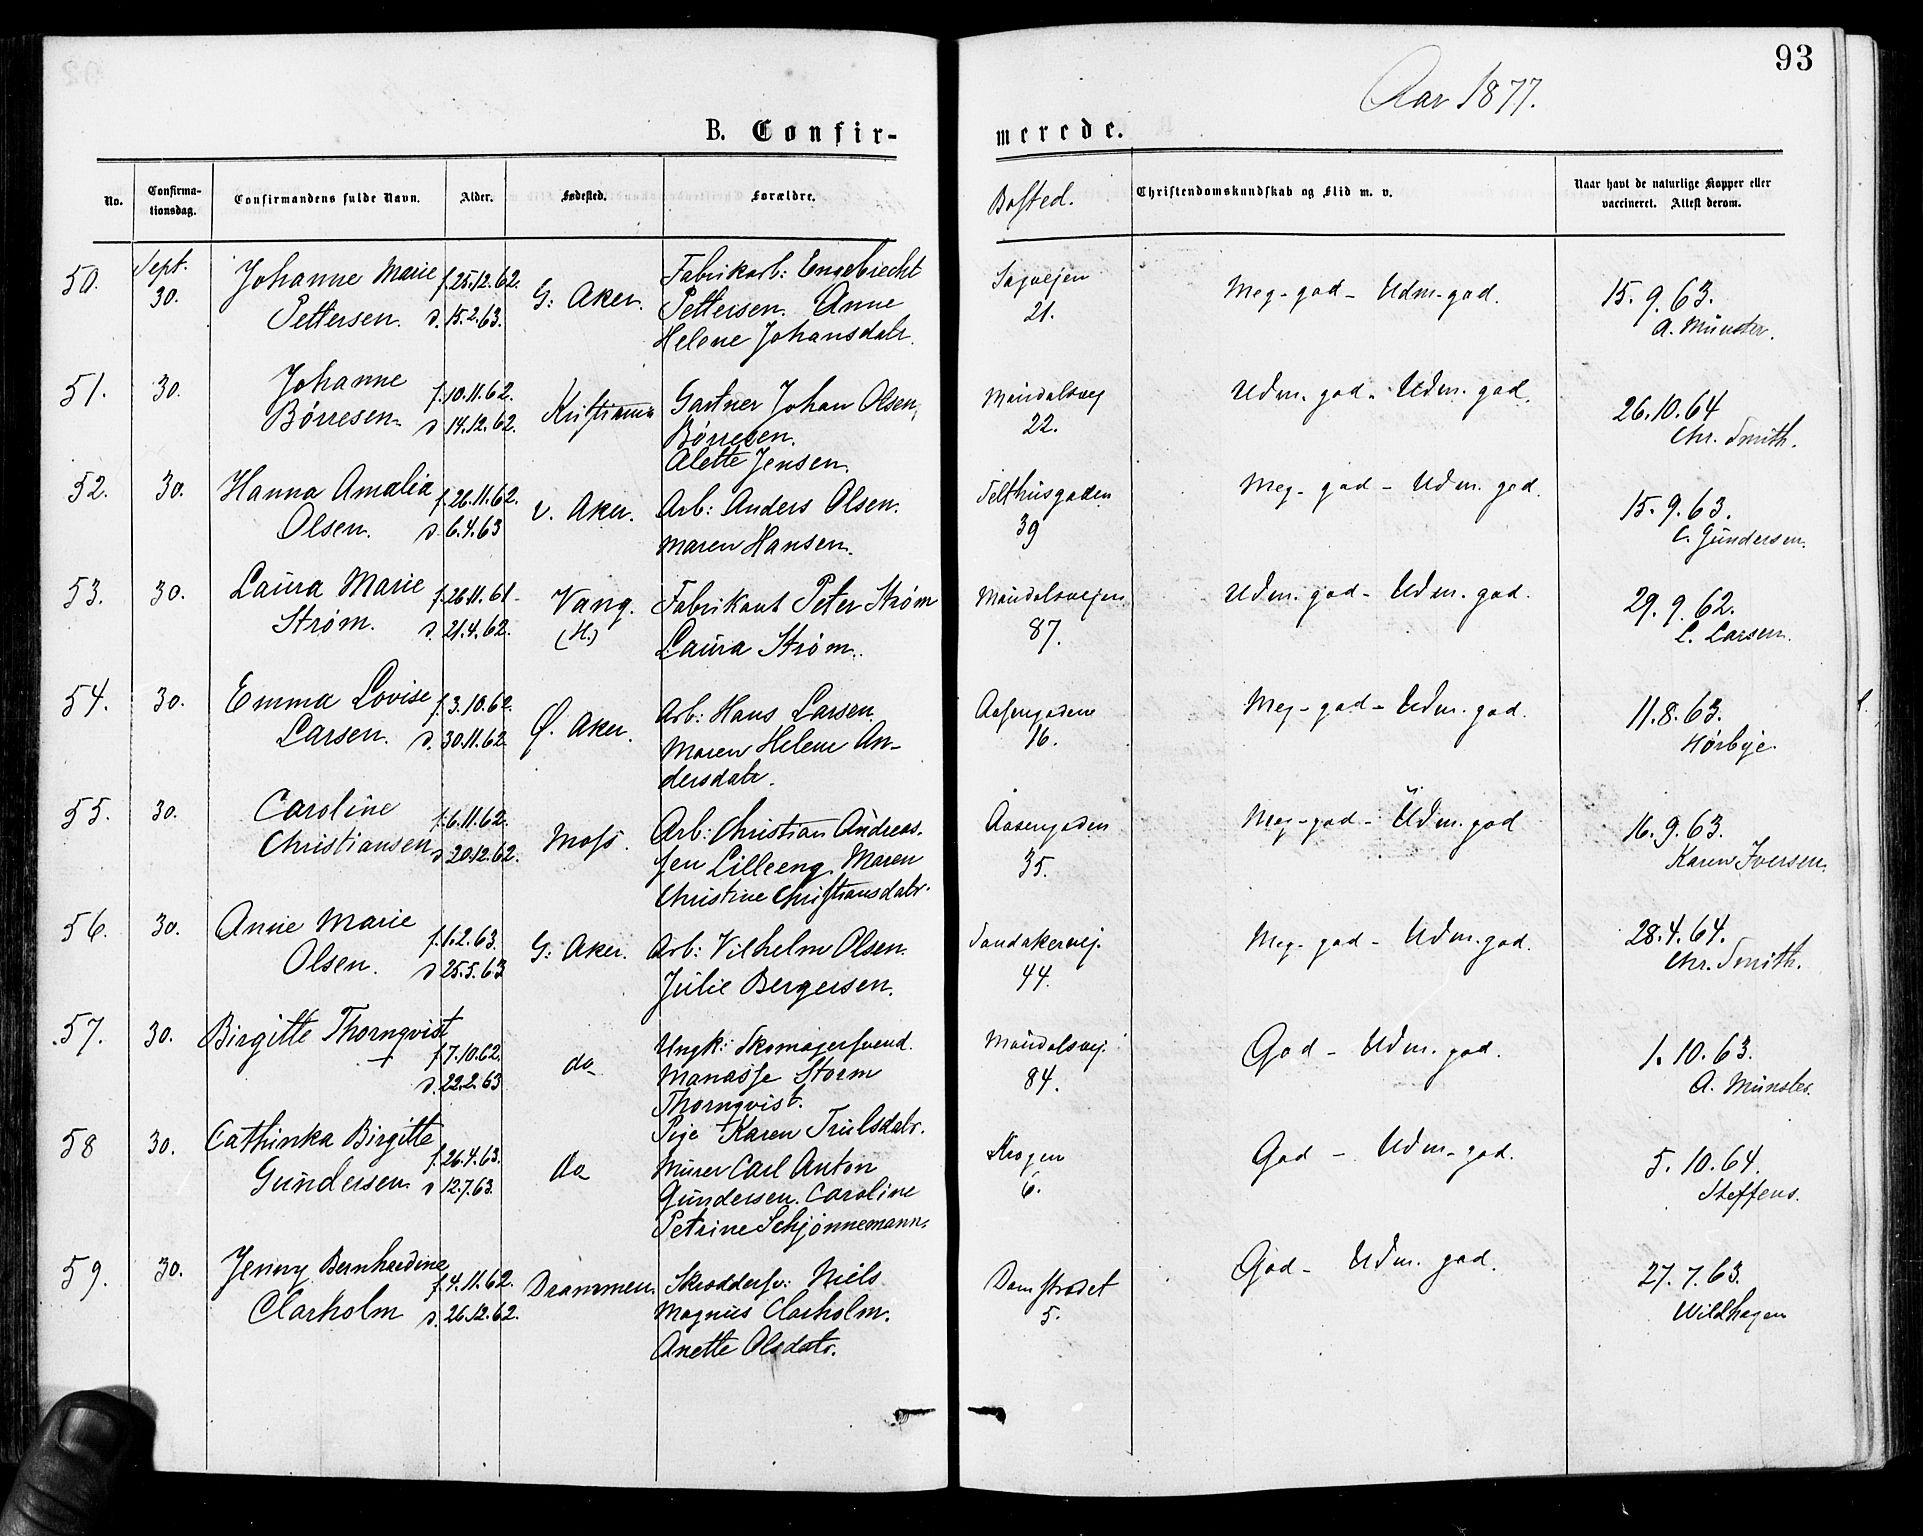 93
Aar 1877.
B. Confir-
merede.
No.
Confirma-
tionsdag.
Confirmandens fulde Navn.
Alder.
Fødested.
Forældre.
Bosted.
Christendomskundskab og Flid m. v.
Naar havt de naturlige Kopper eller
vaccineret. Attest derom.
50.
Sept.
30.
Johanne Marie
Pettersen.
f. 25.12.62.
d. 15.2.63.
G: Aker.
Fabrikarb: Engebrecht
Pettersen. Anne
Helene Johansdatr.
Sagvejen
21.
Meg-god - Udm-god.
15.9.63.
A. Münster.
51.
30.
Johanne
Børresen.
f. 10.11.62.
d. 14.12.62.
Kristiania
Gartner Johan Olsen,
Børresen.
Alette Jensen.
Maridalsvej
22.
Udm. god - Udm. god.
26.10.64
Chr. Smith.
52.
30.
Hanna Amalia
Olsen.
f. 26.11.62.
d. 6.4.63
V. Aker.
Arb: Anders Olsen.
Maren Hansen.
Telthusgaden
39
Meg- god - Udm. god.
15.9.63.
C. Gundersen.
53.
30.
Laura Marie
Strøm.
f. 26.11.61
d. 21.4.62.
Vang.
(H.)
Fabrikant Peter Strøm
Laura Strøm.
Maridalsvejen
87.
Udm. god - Udm. god.
29.9.62.
L. Larsen.
54.
30.
Emma Lovise
Larsen.
f. 3.10.62.
d. 30.11.62
Ø. Aker.
Arb: Hans Larsen.
Maren Helene An-
dersdatr.
Aasengadene
16.
Meg-god - Udm. god.
11.8.63.
Hørbye.
55.
30.
Caroline
Christiansen
f. 6.11.62.
d. 20.12.62.
Moss.
Arb: Christian Andreas-
sen Lilleeng. Maren
Christine Christiansdatr.
Aasengaden
35.
Meg-god - Udm. god
16.9.63.
Karen Iversen.
56.
30.
Anne Marie
Olsen.
f. 1.2.63.
d. 25.5.63
G: Aker.
Arb: Vilhelm Olsen.
Julie Bergersen.
Sandakervej.
44.
Meg- god - Udm. god.
28.4.64.
Chr. Smith.
57.
30.
Birgitte Thornqvist
+
f. 7.10.62.
d. 22.2.63
do
Ungk: Skomagersvend.
Manasse Storm
Thornqvist.
Pige Karen Trulsdatr.
Maridalsvej.
84.
God - Udm. god.
1.10.63.
A. Münster.
58
30.
Cathinka Birgitte
Gundersen
f. 26.4.63.
d 12.7.63.
do
Murer Carl Anton
Gundersen. Caroline
Petrine Schjønnemann.
Krogen
6.
God - Udm. god.
5.10.64.
Steffens.
59.
30.
Jenny Bernhardine
Clarholm
f. 4.11.62.
d. 26.12.62.
Drammen.
Skræddersv: Niels
Magnus Clarholm.
Anette Olsdatr.
Damstrædet
5.
God - Udm. god.
27.7.63.
Wildhagen